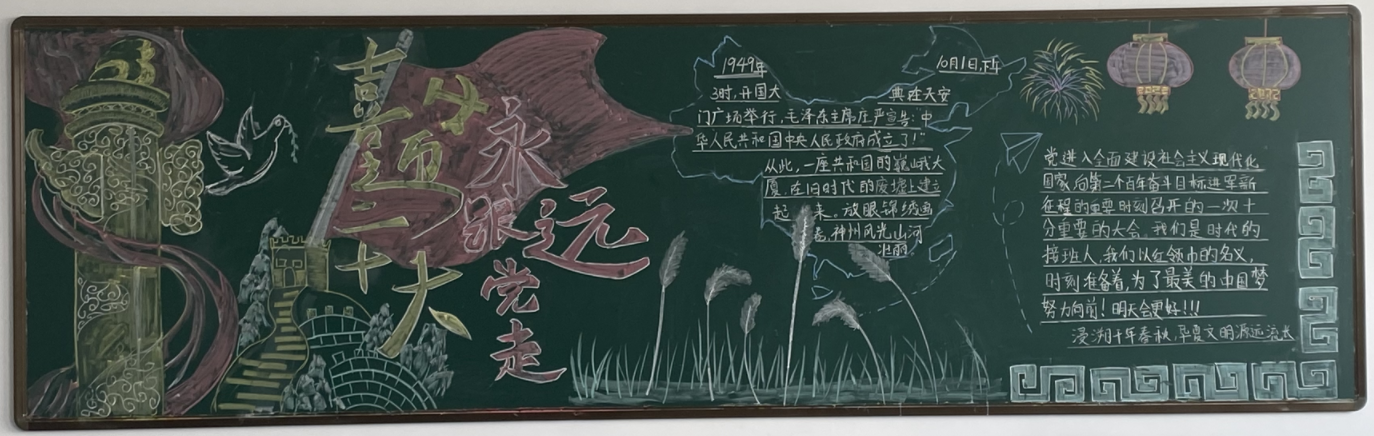 喜迎二十大
永远跟党走
1949年 10月1日,下午
3时,开国大 典在天安
门广场举行,毛泽东主席庄严宣告:“中
华人民共和国中央人民政府成立了!”
从此,一座共和国的巍峨大
厦,在旧时代的废墟上建立
起 来。放眼锦绣画
卷,神州风光山河
壮丽
党进入全面建设社会主义现代化
国家,向第二个百年奋斗目标进军新
征程的重要时刻召开的一次十
分重要的大会。我们是时代的
接班人,我们以红领巾的名义,
时刻准备着,为了最美的中国梦
努力向前!明天会更好!!!
千年春秋,华夏文明源远流长